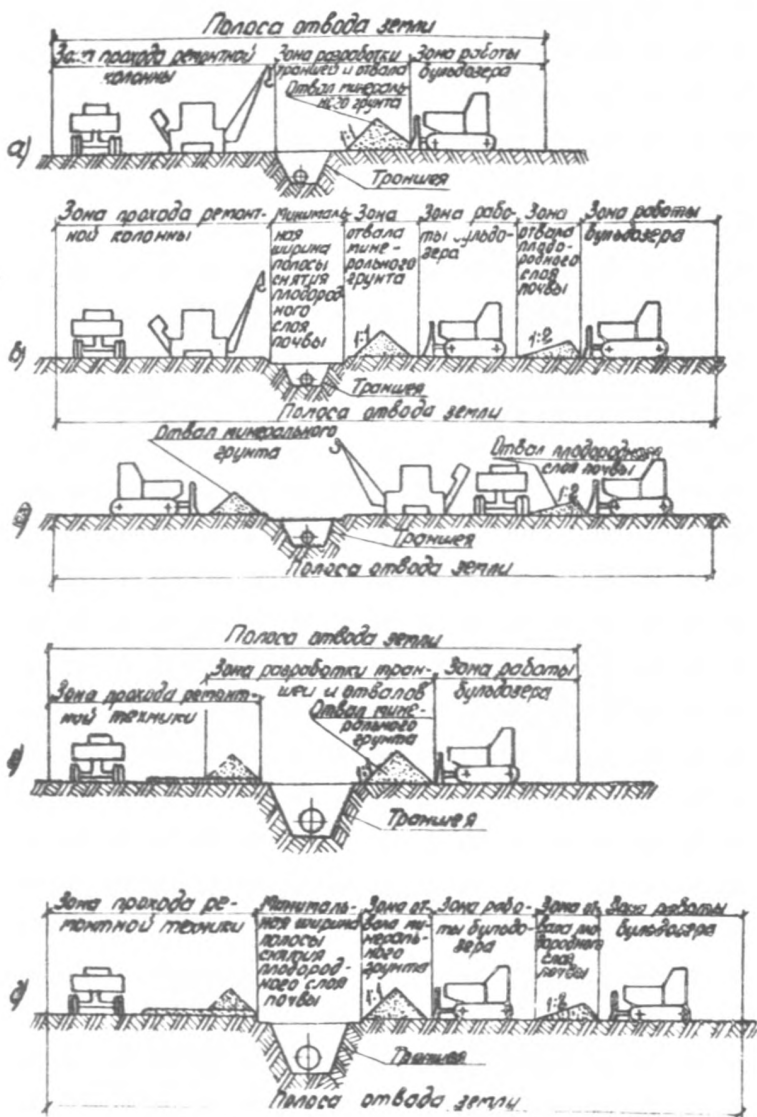 Полоса отвода земли
Зона прохода ремонтной
колонны
Зона разработки
траншей и отвала
Отвал минераль-
ного грунта
Зона работы
бульдозера
а)
1:1
Траншея
Зона прохода ремонт-
ной колонны
Минималь-
ная ширина
полосы
снятия
плодород-
ного
слоя
почвы
Зона
отвала
мине-
рального
грунта
Зона рабо-
ты бульдо-
зера
Зона
отвала
плодо-
родного
слоя
почвы
Зона работы
бульдозера
в)
1:1
1:2
Траншея
Полоса отвода земли
Отвал минерального
грунта
Отвал плодородного
слоя почвы
1:2
Траншея
Полоса отвода земли
Полоса отвода земли
Зона разработки тран-
шеи и отвалов
Зона работы
бульдозера
Зона прохода ремонт-
ной техники
Отвал мине-
рального
грунта
Траншея
Зона прохода ре-
монтной техники
Минималь-
ная ширина
полосы
снятия
плодород-
ного слоя
почвы
Зона от-
вала ми-
нераль-
ного
грунта
Зона рабо-
ты бульдо-
зера
Зона от-
вала пло-
дородного
слоя
почвы
Зона работы
бульдозера
д)
1:1
1:2
Траншея
Полоса отвода земли